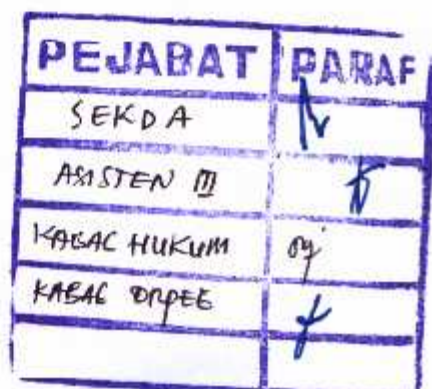 PEJABAT PARAF
SEKDA
ASISTEN III
KABAG HUKUM
KABAG ORPEG